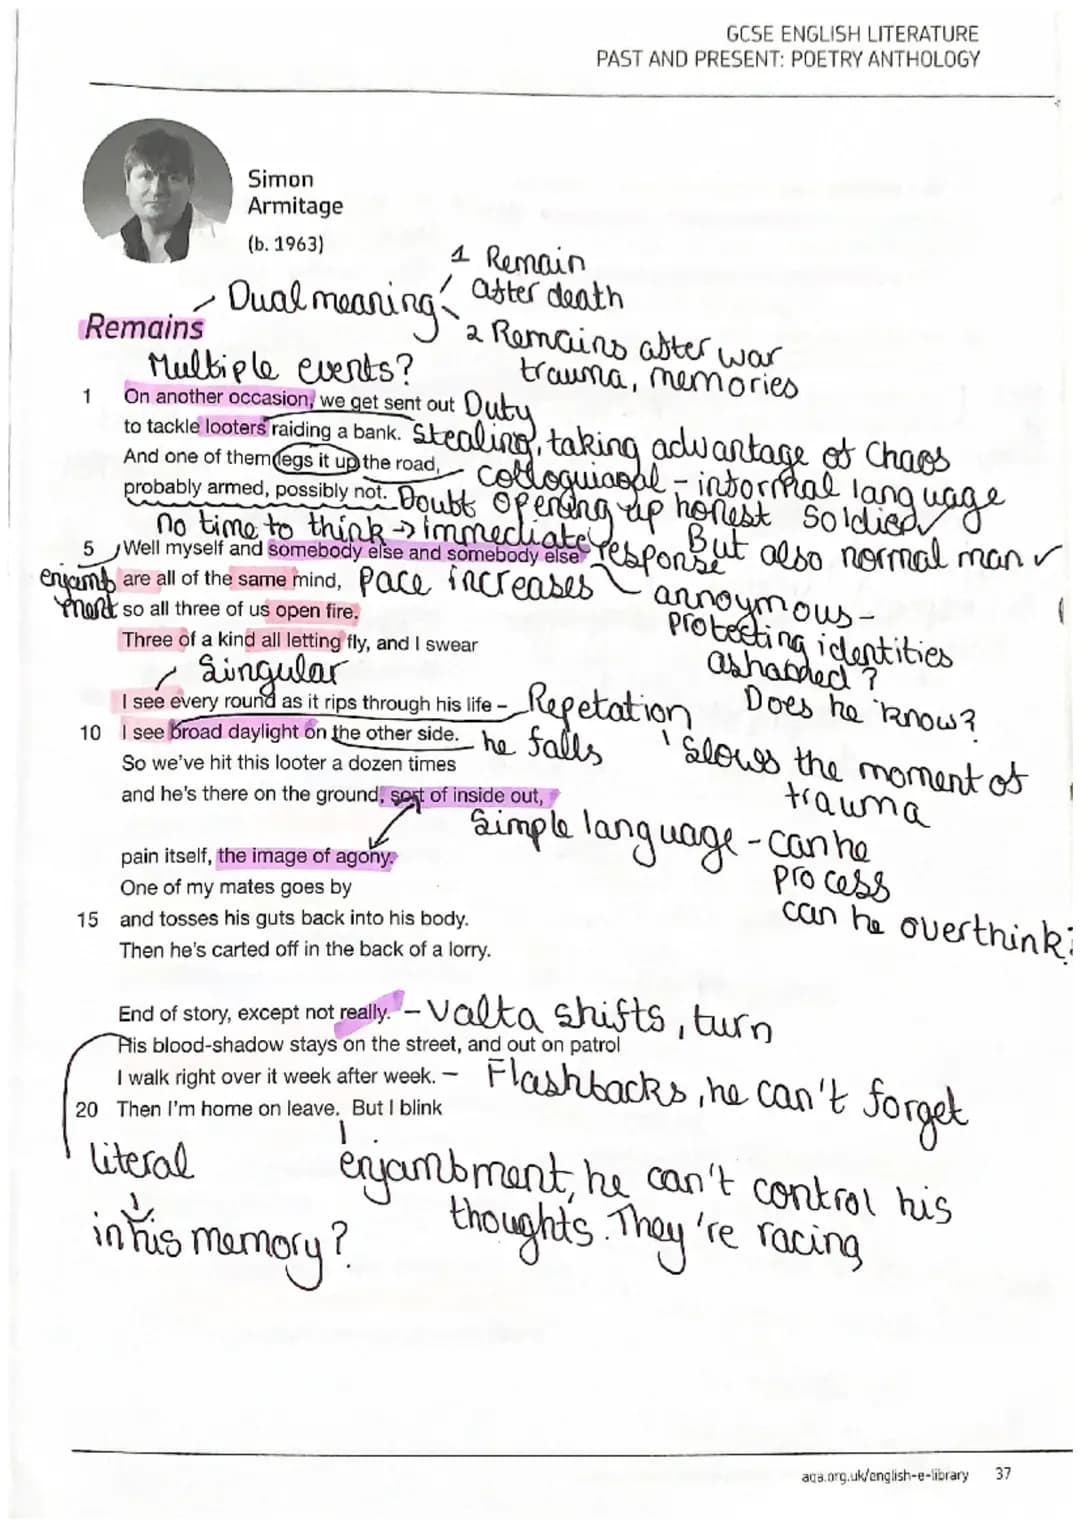 GCSE ENGLISH LITERATURE
PAST AND PRESENT: POETRY ANTHOLOGY
Simon
Armitage
(b. 1963)
1 Remain
after death
Dual meaning
2 Remains after war
trauma, memories
Remains
Multiple events?
1 On another occasion, we get sent out Duty
to tackle looters raiding a bank. Stealing, taking advantage of Chaos
And one of them legs it up the road, colloquiaoal - informal language
probably armed, possibly not. Doubt opening up honest Soldier
no time to think → immediate response But also normal man
5 Well myself and somebody else and somebody else
enjamb
ment
are all of the same mind, Pace increases annoymous -
so all three of us open fire. Protecting identities
Three of a kind all letting fly, and I swear ashamed?
Singular Does he know?
I see every round as it rips through his life – Repetation
10 I see broad daylight on the other side. he falls Slows the moment of
trauma
So we've hit this looter a dozen times
and he's there on the ground, sort of inside out,
Simple language - can he
process
can he overthink?
pain itself, the image of agony.
One of my mates goes by
15 and tosses his guts back into his body.
Then he's carted off in the back of a lorry.
End of story, except not really. - Valta shifts, turn
His blood-shadow stays on the street, and out on patrol
I walk right over it week after week. - Flashbacks, he can't forget
20 Then I'm home on leave. But I blink
literal
in his memory?
enjambment, he can't control his
thoughts. They're racing
aqa.org.uk/english-e-library 37